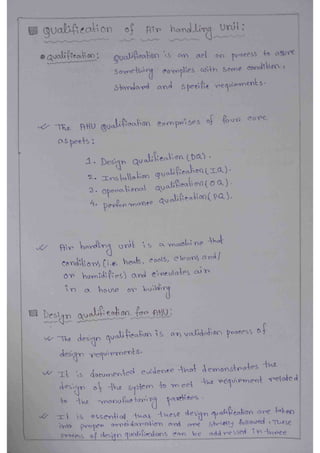 Qualification of Air handling Unit:
Qualification: Qualification is an act or process to assure
something complies with some condition,
Standard and specific requirements.
The AHU qualification comprises of four core
aspects:
1. Design Qualification (DQ).
2. Installation qualification (IQ).
3. operational Qualification (OQ).
4. performance Qualification (PQ).
Air handling unit is a machine that
conditions (i.e. heats, cools, cleans and/
or humidifies) and circulates air
in a house or building
Design qualification for AHU:
The design qualification is an validation process of
design requirments.
It is documented evidence that demonstrates the
design of the system to meet the requirment related
to the manufacturing practices.
It is essential that these design qualification are taken
into proper consideration and are strictly followed. These
process of design qualifications can be addressed in three